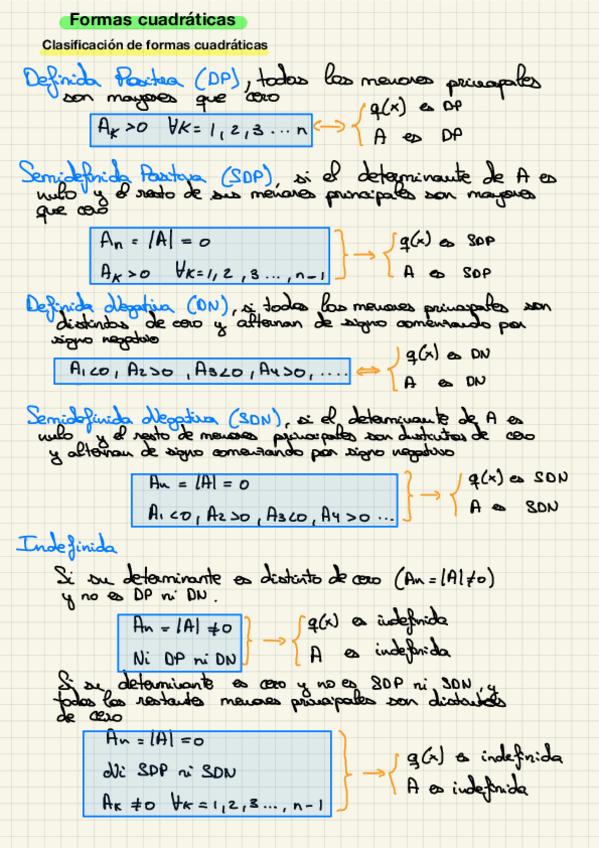 Formas cuadráticas
Clasificación de formas cuadráticas
Definida Positiva (DP), todos los menores principales
son mayores que cero
Aₖ>0 ∀K=1,2,3...n ↔ { q(x) es DP
A es DP
Semidefinida Positiva (SDP), si el determinante de A es
nulo y el resto de sus menores principales son mayores
que cero
Aₙ = |A| = 0
Aₖ>0 ∀K=1,2,3,...,n-1
} → { q(x) es SDP
A es SDP
Definida Negativa (DN), si todos los menores principales son
distintos de cero y alternan de signo comenzando por
signo negativo
A₁<0, A₂>0, A₃<0, A₄>0, .... ↔ { q(x) es DN
A es DN
Semidefinida Negativa (SDN), si el determinante de A es
nulo y el resto de menores principales son distintos de cero
y alternan de signo comenzando por signo negativo
Aₙ = |A| = 0
A₁<0, A₂>0, A₃<0, A₄>0 ...
} → { q(x) es SDN
A es SDN
Indefinida
Si su determinante es distinto de cero (Aₙ=|A|≠0)
y no es DP ni DN.
Aₙ = |A| ≠0
Ni DP ni DN
} → { q(x) es indefinida
A es indefinida
Si su determinante es cero y no es SDP ni SDN, y
todos los restantes menores principales son distintos
de cero
Aₙ = |A| = 0
Ni SDP ni SDN
Aₖ ≠0 ∀K=1,2,3...,n-1
} → { q(x) es indefinida
A es indefinida